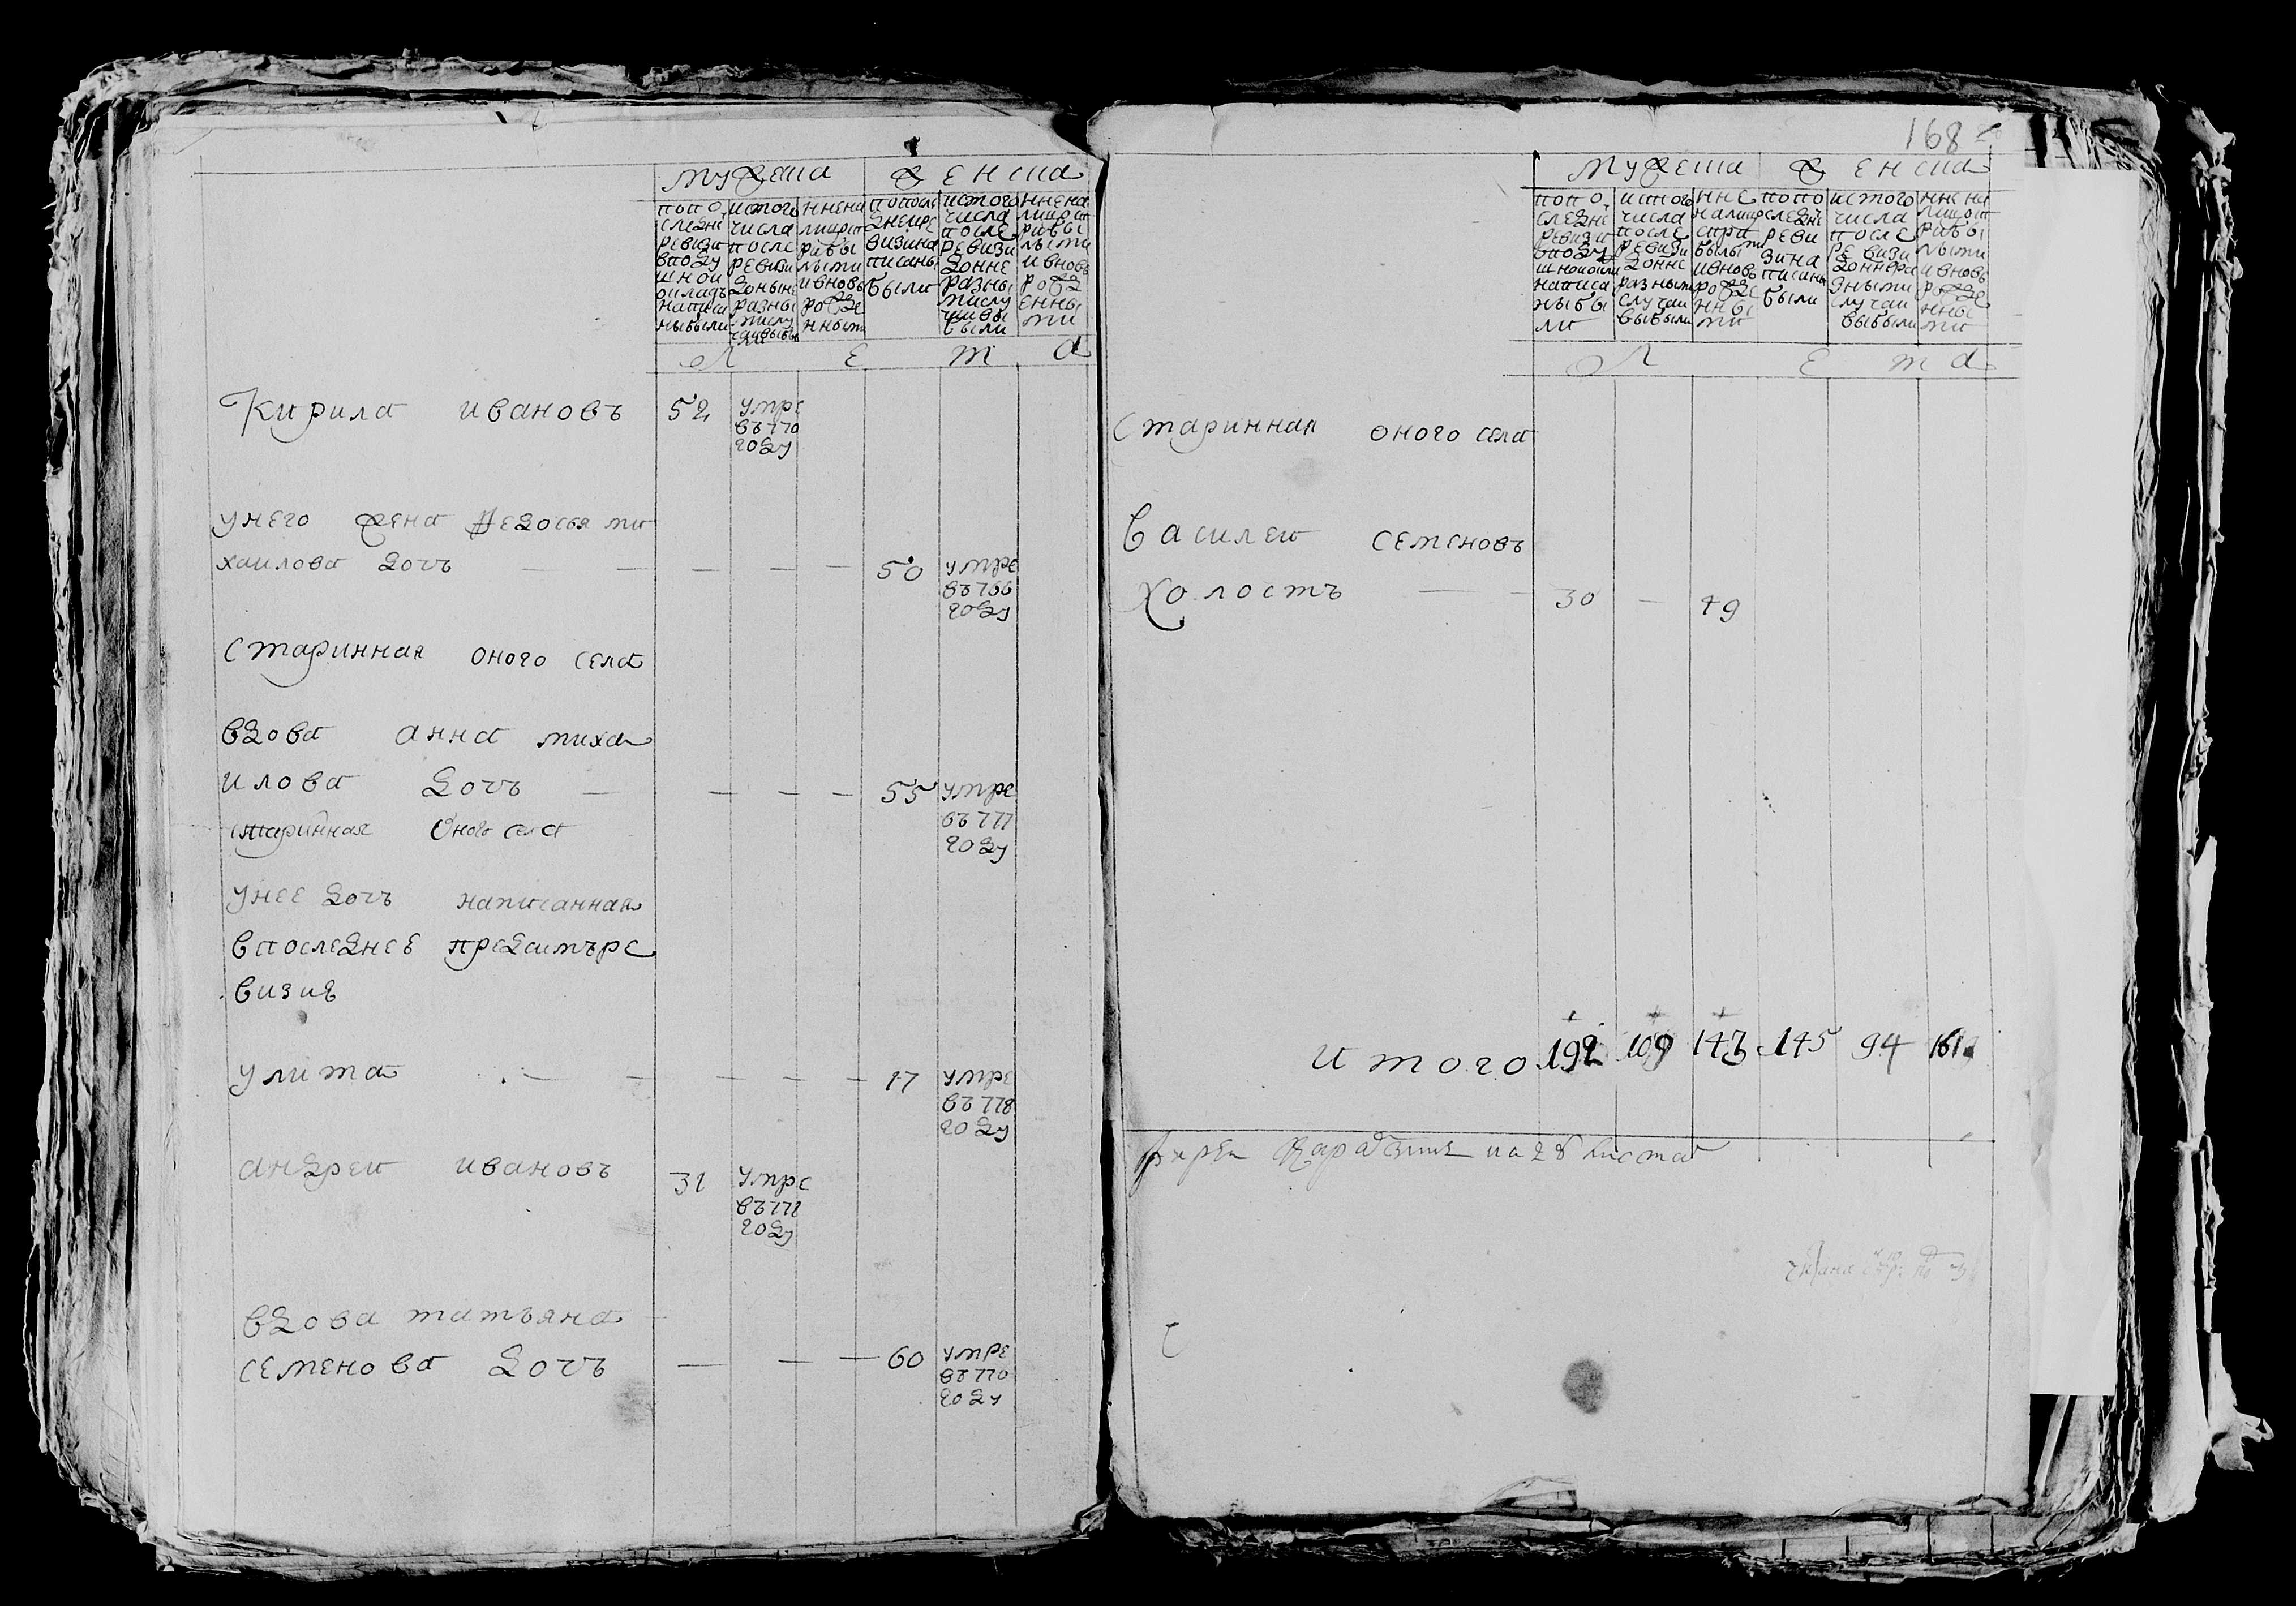 мужеска
женска
попо
следне
ревизи
вподу
шнои
окладъ
написа
ны были
истого
числа
после
ревизи
доныне
разны
ми слу
чаи выбы
ли
ннена
лицо ст
рибы
лыми
ивновь
рожде
нными
попосле
днеи ре
визи на
писаны
были
истого
числа
после
ревизи
доне
разны
ми слу
чаи вы
были
ннена
лицо ст
рибы
лыми
ивновь
рожд
енны
ми
л е т а
Кирила ивановъ 52 умре
въ 770
году
унего жена Федосья ми
хаилова дочь 50 умре
въ 766
году
старинная оного села
вдова анна миха
илова дочь 55 умре
въ 777
году
старинная оного села
унее дочь написанная
впоследнее пред симъ ре
визие
улита 17 умре
въ 778
году
андреи ивановъ 31 умре
въ 772
году
вдова татьяна
семенова дочь 60 умре
въ 770
году
168
мужеска
женска
попо
следне
ревизи
вподу
шнои окла
написа
ны бы
ли
истого
числа
после
ревизи
доне
разными
случаи
выбыли
нне
налицо
с при
былы
ми
ивновь
рожде
нны
ми
попо
следне
реви
зи на
писаны
были
истого
числа
после
ревизи
доне ра
зными
случаи
выбыли
нне на
лицо ст
рибы
лыми
ивновь
рожде
нны
ми
л е т а
старинная оного села
василеи семеновъ
холостъ 30 49
итого 192 109 147 145 94 161
на 28 листа